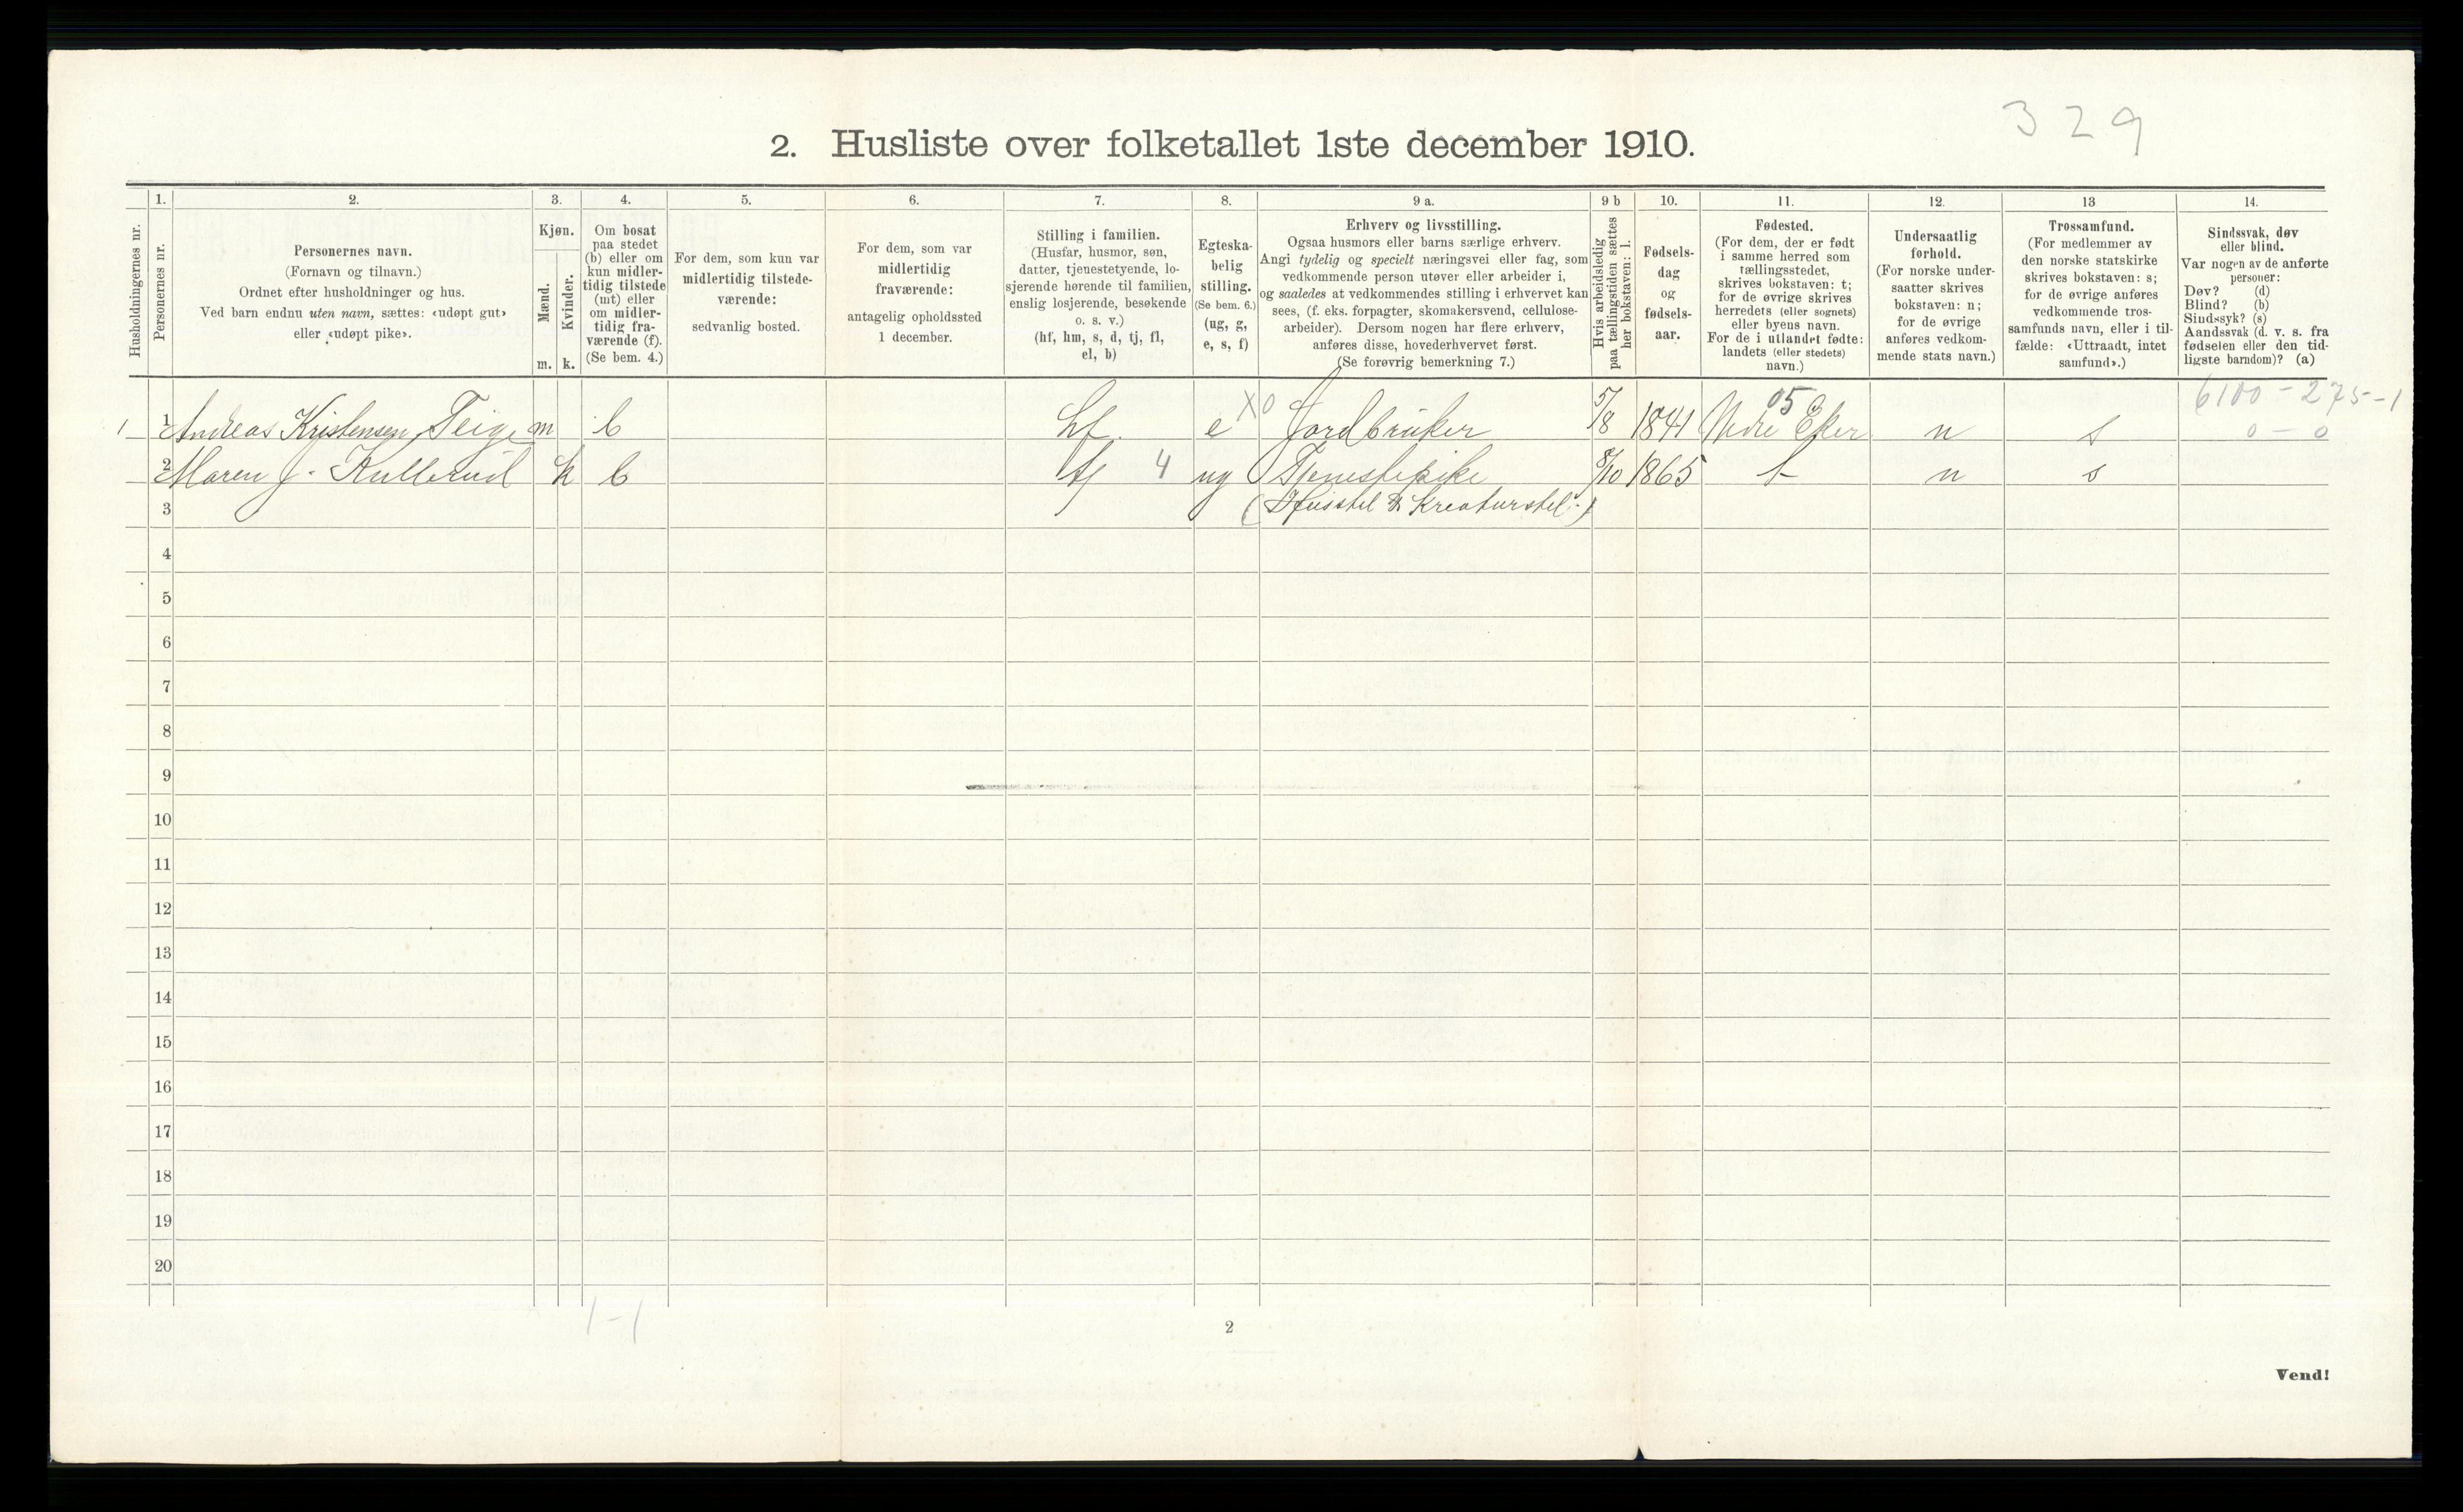 329
2. Husliste over folketallet 1ste december 1910.
Husholdningernes nr.
1.
Personernes nr.
2.
Personernes navn.
(Fornavn og tilnavn.)
Ordnet efter husholdninger og hus.
Ved barn endnu uten navn, sættes: «udøpt gut»
eller «udøpt pike».
3.
Kjøn.
Mænd.
m.
Kvinder.
k.
4.
Om bosat
paa stedet
(b) eller om
kun midler-
tidig tilstede
(mt) eller
om midler-
tidig fra-
værende (f).
(Se bem. 4.)
5.
For dem, som kun var
midlertidig tilstede-
værende:
sedvanlig bosted.
6.
For dem, som var
midlertidig
fraværende:
antagelig opholdssted
1 december.
7.
Stilling i familien.
(Husfar, husmor, søn,
datter, tjenestetyende, lo-
sjerende hørende til familien,
enslig losjerende, besøkende
o. s. v.)
(hf, hm, s, d, tj, fl,
el, b)
8.
Egteska-
belig
stilling.
(Se bem. 6.)
(ug, g,
e, s, f)
9 a.
Erhverv og livsstilling.
Ogsaa husmors eller barns særlige erhverv.
Angi tydelig og specielt næringsvei eller fag, som
vedkommende person utøver eller arbeider i,
og saaledes at vedkommendes stilling i erhvervet kan
sees, (f. eks. forpagter, skomakersvend, cellulose-
arbeider). Dersom nogen har flere erhverv,
anføres disse, hovederhvervet først.
(Se forøvrig bemerkning 7.)
9 b
Hvis arbeidsledig
paa tællingstiden sættes
her bokstaven: l.
10.
Fødsels-
dag
og
fødsels-
aar.
11.
Fødested.
(For dem, der er født
i samme herred som
tællingsstedet,
skrives bokstaven: t;
for de øvrige skrives
herredets (eller sognets)
eller byens navn.
For de i utlandet fødte:
landets (eller stedets)
navn.)
12.
Undersaatlig
forhold.
(For norske under-
saatter skrives
bokstaven: n;
for de øvrige
anføres vedkom-
mende stats navn.)
13
Trossamfund.
(For medlemmer av
den norske statskirke
skrives bokstaven: s;
for de øvrige anføres
vedkommende tros-
samfunds navn, eller i til-
fælde: «Uttraadt, intet
samfund».)
14.
Sindssvak, døv
eller blind.
Var nogen av de anførte
personer:
Døv? (d)
Blind? (b)
Sindssyk? (s)
Aandssvak (d. v. s. fra
fødselen eller den tid-
ligste barndom)? (a)
05 6100 - 275 - 1
1 1 Andreas Kristensen Teige m b hf. e X0 Jordbruker 5/8 1841 Nedre Eker n s 0 - 0
2 Maren J. Kullerud k b tj 4 ug Tjenestepike 8/10 1865 t n s
3 (Husstel & Kreaturstel.)
4
5
6
7
8
9
10
11
12
13
14
15
16
17
18
19
20
1 - 1
2
Vend!